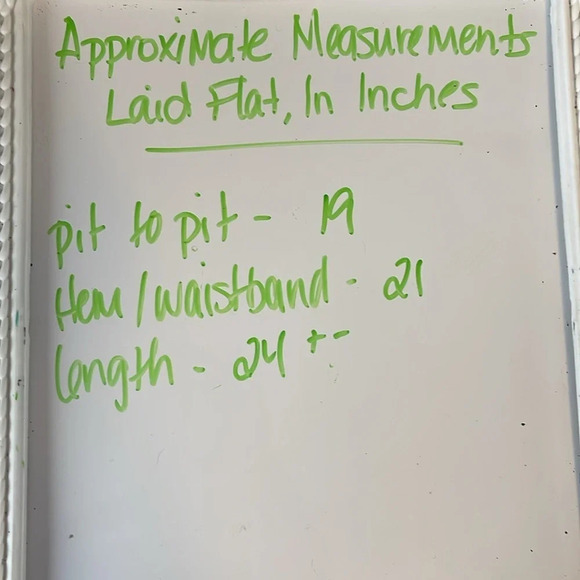 Approximate Measurements
Laid Flat, In Inches
pit to pit - 19
Hem/waistband - 21
length - 24 +-